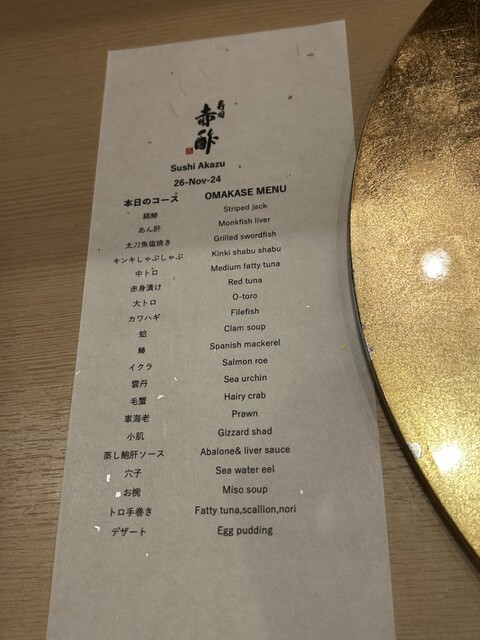 寿司
赤酢
Sushi Akazu
26-Nov-24
本日のコース OMAKASE MENU
縞鯵 Striped jack
あん肝 Monkfish liver
太刀魚塩焼き Grilled swordfish
キンキしゃぶしゃぶ Kinki shabu shabu
中トロ Medium fatty tuna
赤身漬け Red tuna
大トロ O-toro
カワハギ Filefish
蛤 Clam soup
鰆 Spanish mackerel
イクラ Salmon roe
雲丹 Sea urchin
毛蟹 Hairy crab
車海老 Prawn
小肌 Gizzard shad
蒸し鮑肝ソース Abalone& liver sauce
穴子 Sea water eel
お椀 Miso soup
トロ手巻き Fatty tuna,scallion,nori
デザート Egg pudding